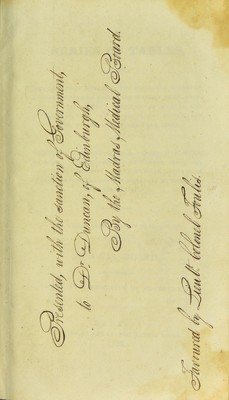 Presented, with the sanction of Government,
to Dr. Duncan, of Edinburgh,
By the Madras Medical Board.
Favoured by Lieut. Colonel Foulis.